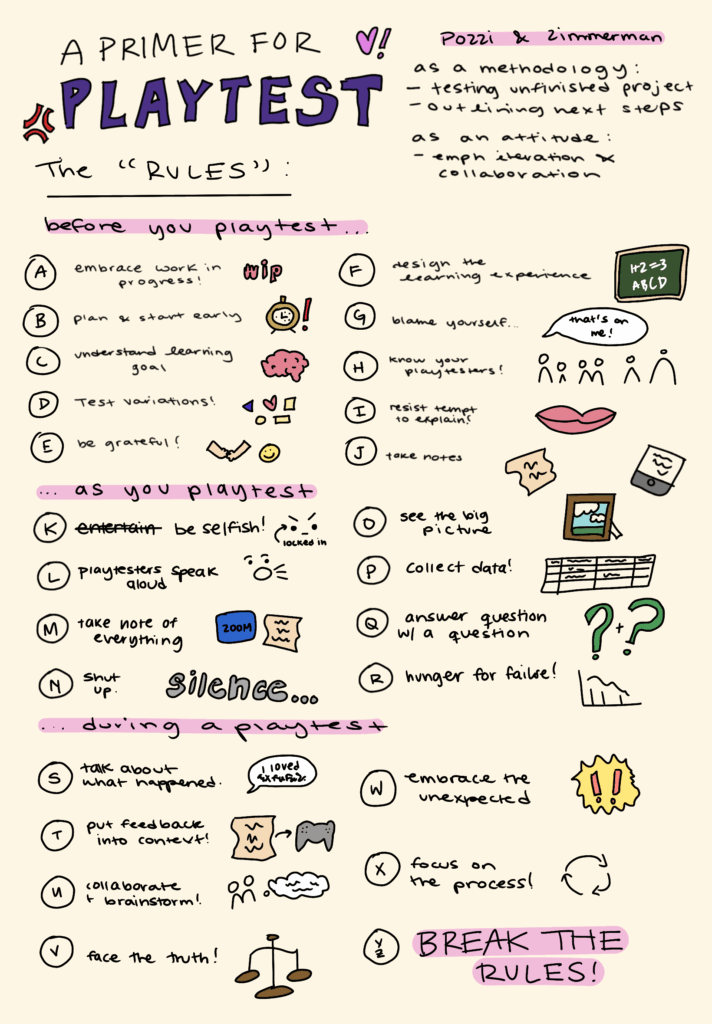 A PRIMER FOR
!
PLAYTEST
Pozzi & Zimmerman
as a methodology:
- testing unfinished project
- outlining next steps
as an attitude:
- emph iteration &
collaboration
The "RULES":
before you playtest...
A embrace work in
progress!
wip
B plan & start early
!
C understand learning
goal
D Test variations!
E be grateful!
F design the
learning experience
1+2=3
ABCD
G blame yourself...
that's on
me!
H know your
playtesters!
I resist tempt
to explain!
J take notes
... as you playtest
K entertain be selfish!
locked in
L playtesters speak
aloud
M take note of
everything
ZOOM
N shut
up.
silence...
O see the big
picture
P collect data!
Q answer question
w/ a question
? + ?
R hunger for failure!
... during a playtest
S talk about
what happened.
I loved
T put feedback
into context!
U collaborate
+ brainstorm!
V face the truth!
W embrace the
unexpected
!!
X focus on
the process!
Y
Z
BREAK THE
RULES!